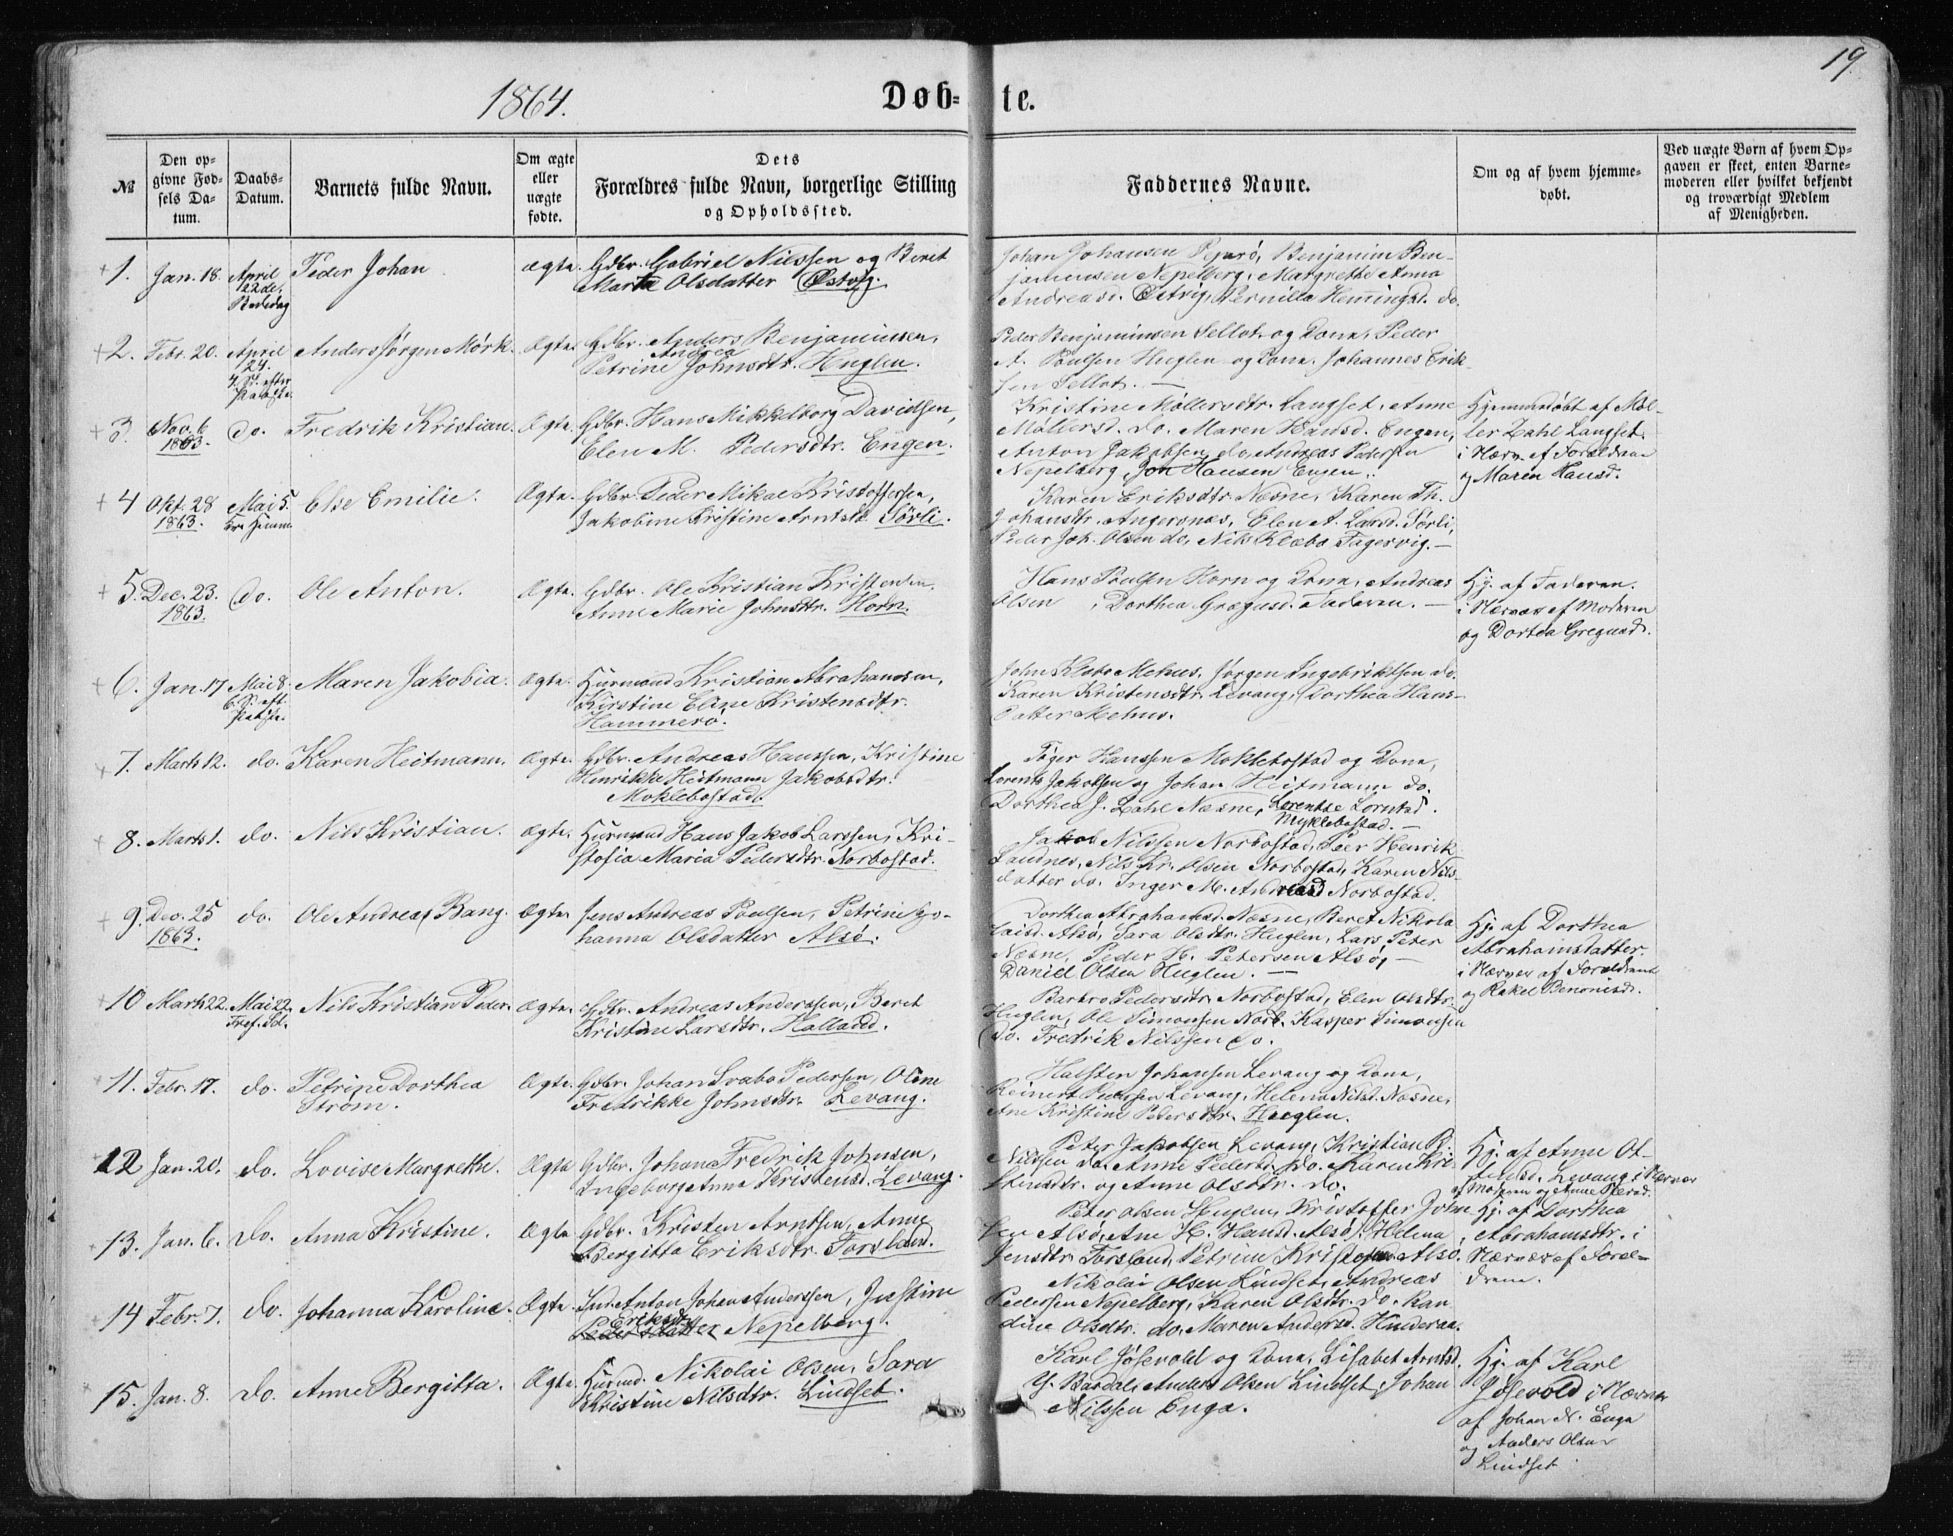 19.
1864.
Døb-
te.
№
Den op-
givne Fød-
sels Da-
tum.
Daabs-
Datum.
Barnets fulde Navn.
Om ægte
eller
uægte
fødte.
Dets
Forældres fulde Navn, borgerlige Stilling
og Opholdssted.
Faddernes Navne.
Om og af hvem hjemme-
døbt.
Ved uægte Børn af hvem Op-
gaven er skeet, enten Barne-
moderen eller hvilket bekjendt
og troværdigt Medlem
af Menigheden.
1.
Jan. 18.
April
22de,
Bededag
Peder Johan
Ægte.
Gdbr. Gabriel Nilssen og Beret
Marta Olsdatter Østvig.
Johan Johansen Benjamin Ben-
jaminsen Nepelberg, Margrethe Anna
Andreasd. Østvig, Pernilla Hemingsd. do.
2.
Febr. 20.
April
24.
4. S. efter
Paaske.
Anders Jørgen Mørk.
Ægte.
Gdbr. Anders Benjaminsen,
Andrea
Petrine Johnsdtr. Huglen.
Peder Benjaminsen Sellot og Kona, Peder
A. Poulsen Huglen og Kona, Johannes Erik-
sen Sellot. —
3.
Nov. 6
1863.
do.
Fredrik Kristian.
Ægte.
Gdbr. Hans Mikkelborg Davidsen,
Elen M. Pedersdtr. Engen.
Kristine Møllersdtr. Langset, Anne
Møllersd. do. Maren Hansd. Engen,
Anton Jakobsen do, Andreas Pedersen
Nepelberg, Jon Hansen Engen.
Hjemmedøbt af Møl-
ler Zahl Langset
i Nærv. af Forældrene
og Maren Hansd.
4
Okt. 28
1863.
Mai 5.
Kr. Himm.
Else Emilie.
Ægte.
Gdbr. Peder Mikal Kristoffersen,
Jakobine Kristine Arntsd. Sörli.
Karen Eriksdtr. Næsne, Karen Th.
Johansdtr. Angersnæs, Elen A. Larsd. Sörli,
Peder Joh. Olsen do, Nils Klæbo Fagervig. —
5.
Dec. 23.
1863.
do.
Ole Anton.
Ægte.
Gdbr. Ole Kristian Kristensen.
Anne Marie Johnsdtr. Horn.
Hans Poulsen Horn og Kona, Andreas
Olsen, Dorthea Gregusd. Faderen. —
Hj. af Faderen.
i Nærvær af Moderen
og Dortea Gregusd.
6.
Jan. 17
Mai 8.
6. S. eft.
Paaske.
Maren Jakobia.
Ægte.
Huusmand Kristian Abrahamsen,
Kirstine Eline Kristensdtr.
Hammerö.
John Klæbo Mehus, Jörgen Ingebriktsen do.
Karen Kristensdtr. Levang, Dorthea Hans-
datter Mehus.
7.
Marts 12.
do.
Karen Heitmann.
Ægte.
Gdbr. Andreas Hanssen, Kristine
Henrikke Heitmann Jakobsdtr.
Moklebostad.
Töger Hanssen Moklebostad og Kona,
Lorents Jakobsen og Johan Heitmann do.
Dorthea J. Zahl Næsne, Lorentze Lorntsd.
Myklebostad. —
8.
Marts 1.
do.
Nils Kristian.
Ægte.
Huusmand Hans Jakob Larssen, Kri-
stofia Maria Pedersdtr. Norbostad.
Jakob Nilssen Norbostad, Peer Henrik
Sandnes, Nils Kr. Olsen Norbostad, Karen Nils-
datter do. Inger M. Andreasd Norbostad.
9.
Dec. 25
1863.
do.
Ole Andreas Bang.
Ægte.
Jens Andreas Poulsen, Petrine Jo-
hanna Olsdatter Alsö.
Dorthea Abrahamsd. Næsne, Beret Nikola-
isd. Alsö, Sara Olsdtr. Huglen, Lars Peter
Næsne, Peder H. Petersen Alsö, —
Daniel Olsen Huglen. —
Hj. af Dorthea
Abrahamsdatter.
i Nærvær af Forældrene
og Rakel Benonisd.
10
Marts 22.
Mai 22.
Tref. Sd.
Nils Kristian Peder.
Ægte.
Gdbr. Andreas Andersen, Beret
Kristine Larsdtr. Halland.
Barbro Pedersdtr. Norbostad, Elen Olsdtr.
Huglen, Ole Simonsen Norb. Kasper Simonsen
do. Fredrik Nilssen do.
11.
Febr. 17.
do.
Petrine Dorthea
Ström.
Ægte.
Gdbr. Johan Svabo Pedersen, Oline
Fredrikke Johnsdtr. Levang.
Halsten Johansen Levang og Kona,
Reinert Pedersen Levang, Helena Nilsd. Næsne,
Ane Kristine Pedersdtr. Huglen.
12
Jan. 20.
do.
Lovise Margrethe.
Ægte
Gdbr. Johan Fredrik Johnsen,
Ingeborg Anna Kristensd. Levang.
Peter Jakobsen Levang, Kristian B.
Nilssen do. Anne Pedersd. do. Karen Kri-
stensdtr. og Anne Olsdtr. do.
Hj. af Anne Ol-
Levang i Nærvær
af Moderen og Anne Pedersd.
13.
Jan. 6.
do.
Anna Kristine.
Ægte
Gdbr. Kristen Arntsen, Anne
Bergitta Eriksdtr. Forsland.
Peter Olsen Huglen, Kristoffer John-
sen Alsö, Ane H. Hansd. Alsö, Helena
Jensdtr. Forsland, Petrine Alsö.
Hj. af Dorthea
Abrahamsdtr. i
Nærvær af Foræl-
drene.
14
Febr. 7.
do.
Johanna Karoline.
Ægte.
Ind. Anton Johan Andersen, Justine
Eriksdtr
Pedersdatter Nepelberg.
Nikolai Olsen Lindset, Andreas
Pedersen Nepelberg, Karen Olsdtr. do. Ran-
dine Olsdtr. do, Maren Andersd. Hunderaa.
15.
Jan. 8.
do.
Anne Bergitta.
Ægte.
Huusmd. Nikolai Olsen, Sara
Kristine Nilsdtr. Lindset.
Karl Jösevold og Kona, Lisabet Arntsd.
Y. Bardal, Anders Olsen Lindset, Johan
Nilssen Enga.
Hj. af Karl
Jösevold i Nærvær
af Johan N. Enga
og Anders Olsen
Lindset